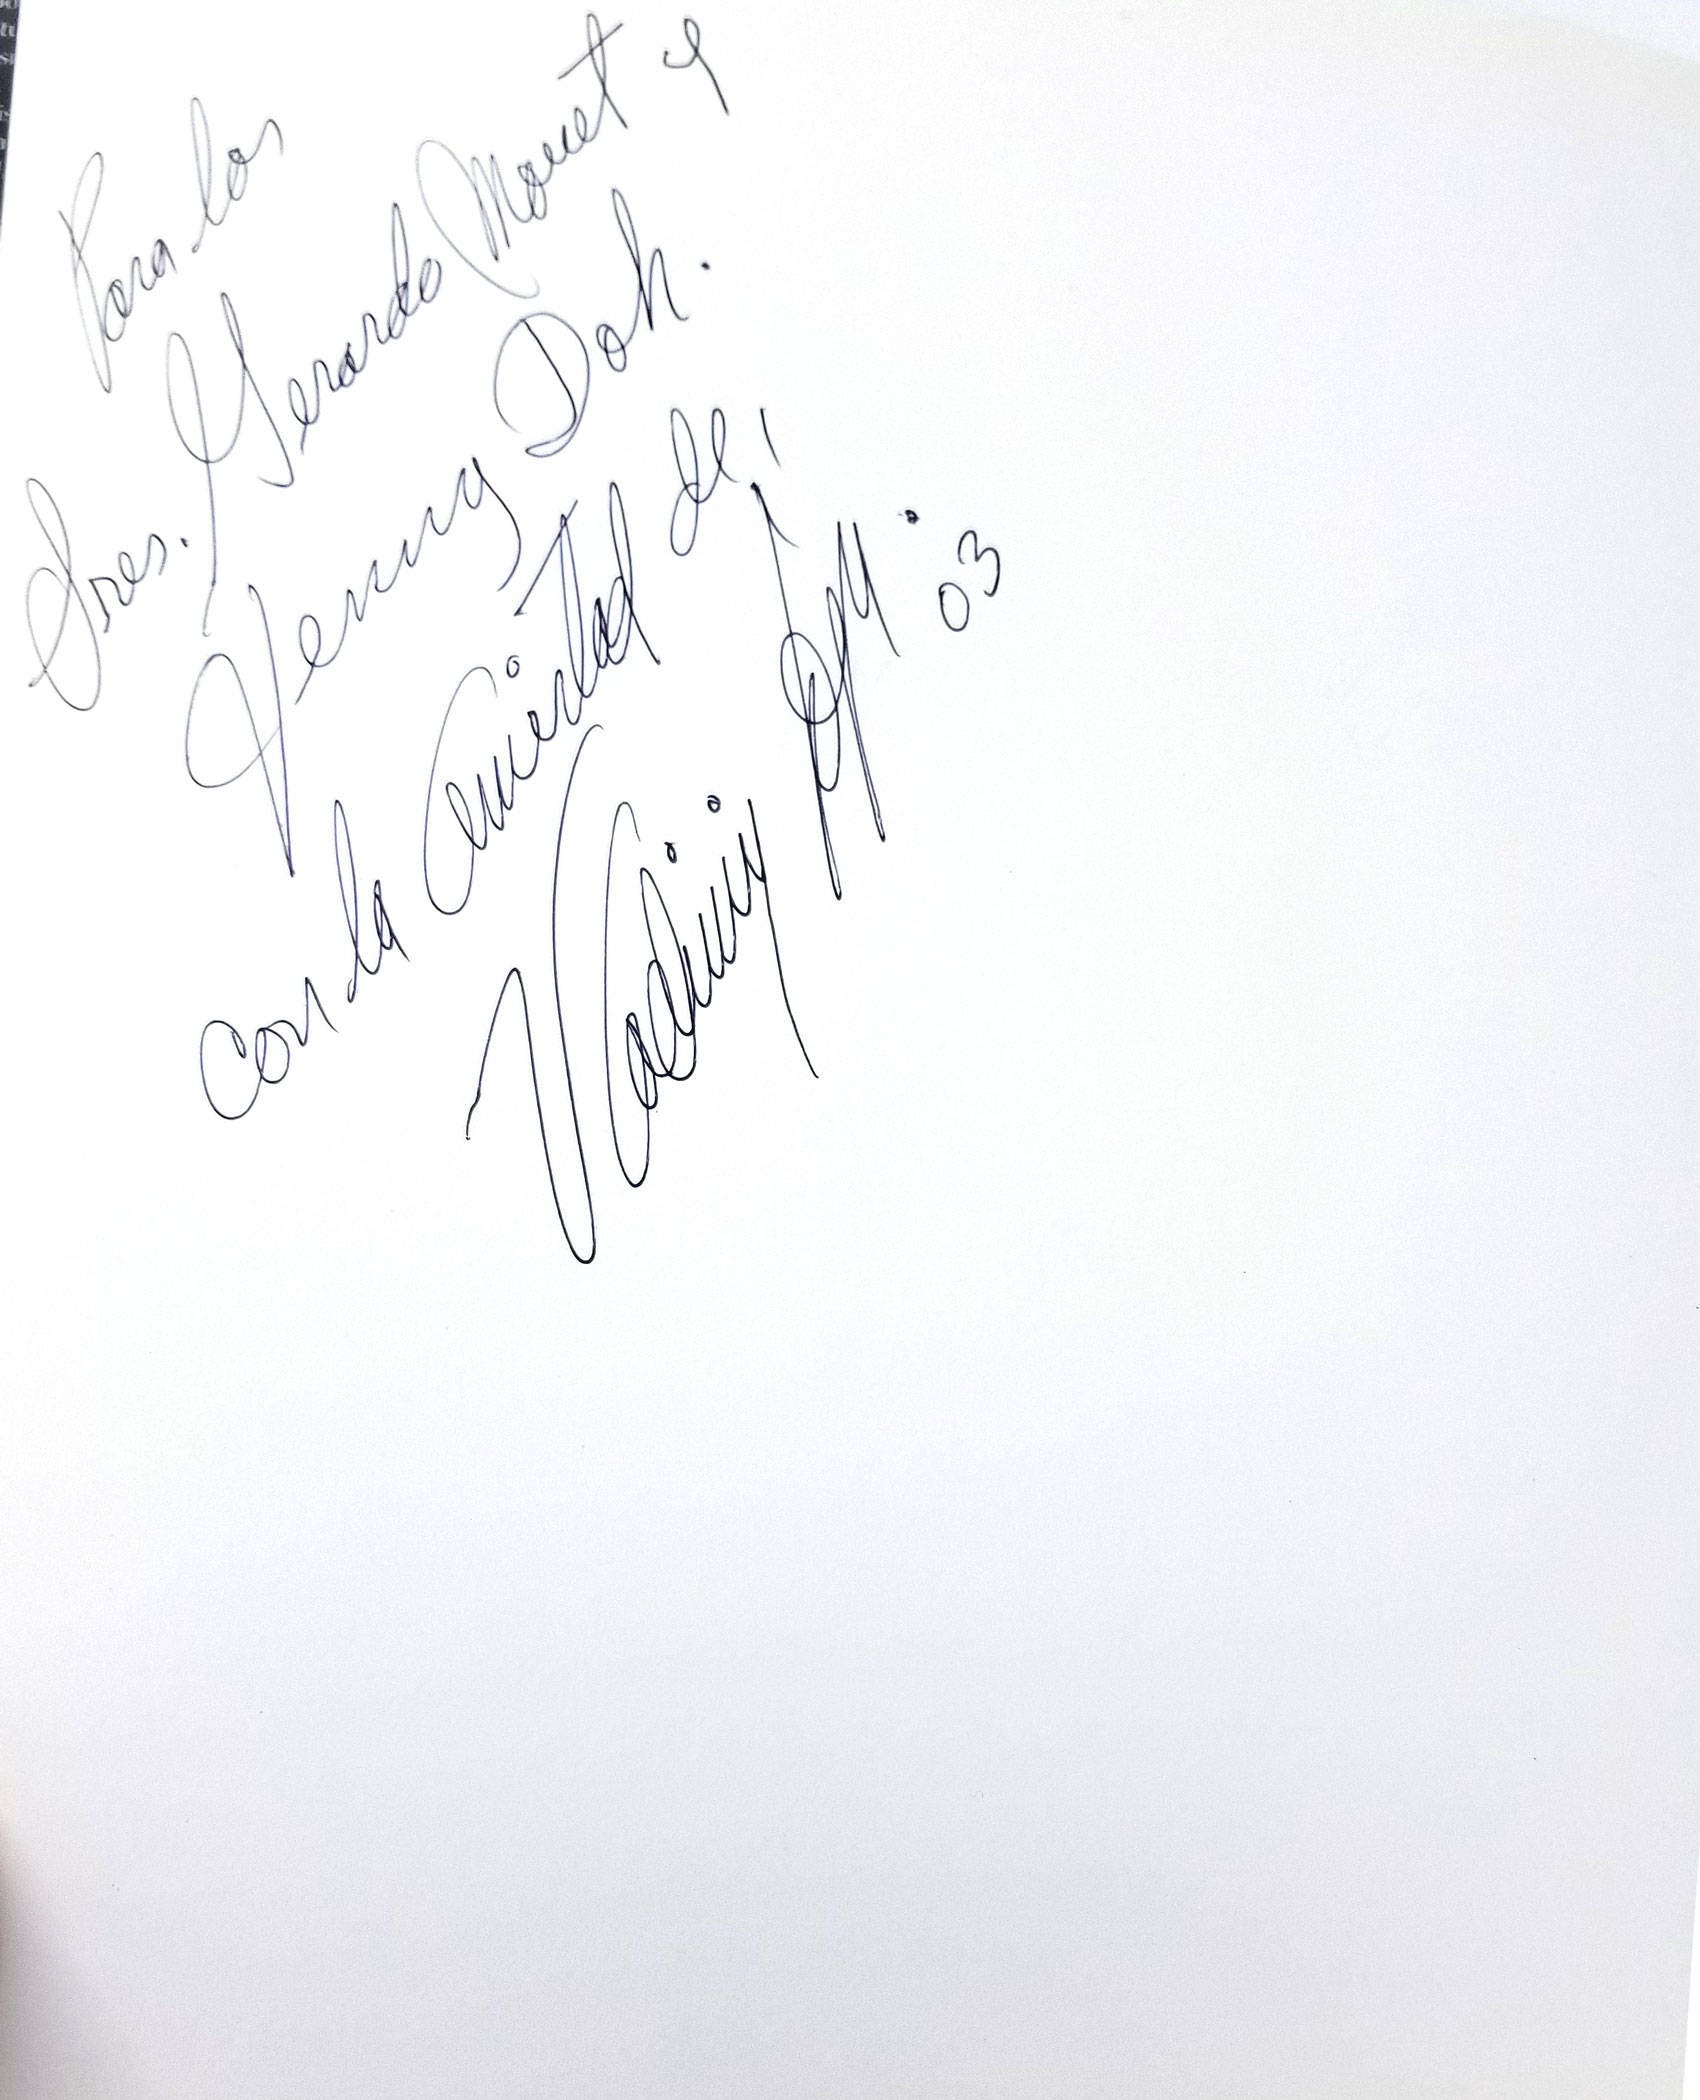 Para los
Sres. Gerardo Mouet y
Jenny Doh.
con la Amistad de!
03